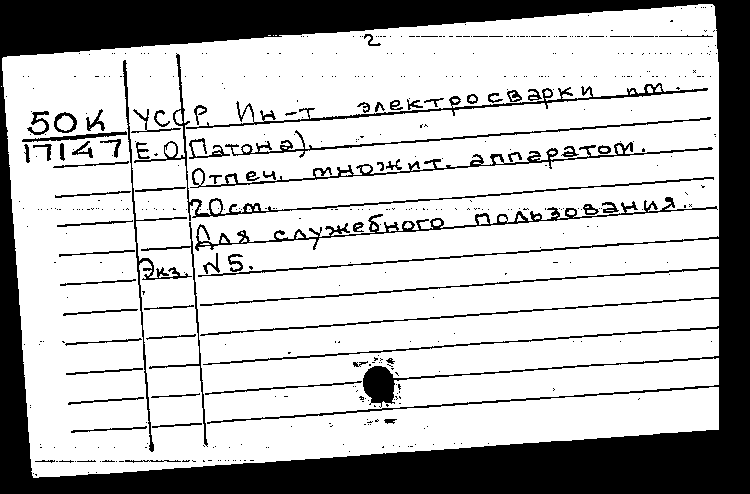 2
50К УССР Ин-т электросварки им.
17147 Е.О.Патона).
Отпеч. множит. аппаратом.
20см.
Для служебного пользования.
Экз. №5.